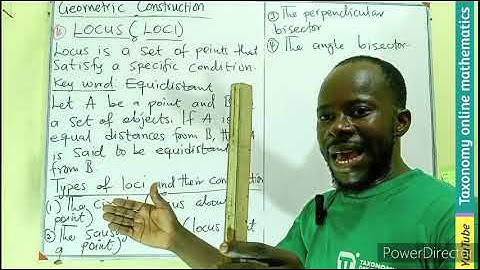 Geometric Construction
LOCUS (LOCI)
Locus is a set of points that
satisfy a specific condition.
Key word: Equidistant
Let A be a point and B
a set of objects. If A is
equal distances from B, then A
is said to be equidistant
from B.
Types of loci and their construction
1) The
point)
2) The (locus
point)
③ The perpendicular
bisector
④ The angle bisector.
Taxonomy online mathematics
YouTube
TAXONOMY
PowerDirector